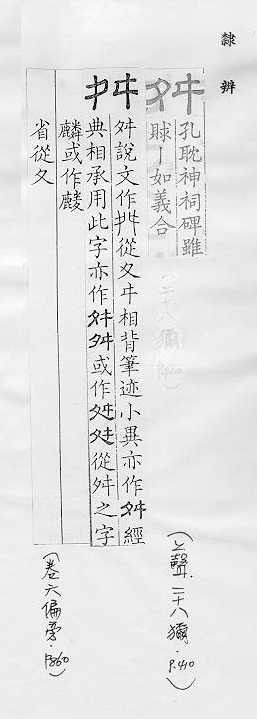 隸辨
舛
孔耽神祠碑雖
賕一如義合
(上聲.二十八獮.P.410)
舛
舛說文作舛從夊㐄相背筆迹小異亦作舛經
典相承用此字亦作舛舛或作舛舛從舛之字
麟或作𪋯
省從夊
(卷六偏旁.P.860)